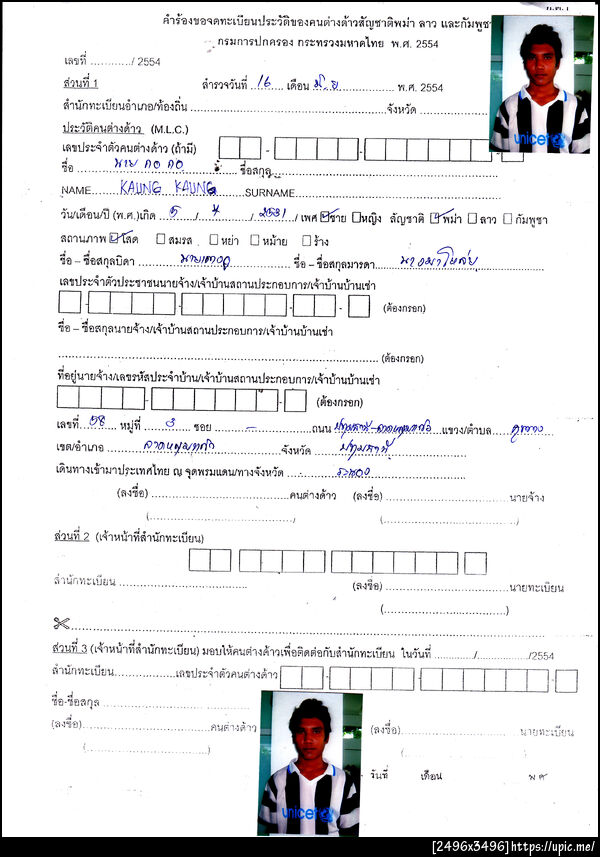 คำร้องขอจดทะเบียนประวัติของคนต่างด้าวสัญชาติพม่า ลาว และกัมพูชา
กรมการปกครอง กระทรวงมหาดไทย พ.ศ. 2554
เลขที่ ............/ 2554
ส่วนที่ 1 สำรวจวันที่ 16 เดือน มิ.ย พ.ศ. 2554
สำนักทะเบียนอำเภอ/ท้องถิ่น ........ จังหวัด
unicef
ประวัติคนต่างด้าว (M.L.C.)
เลขประจำตัวคนต่างด้าว (ถ้ามี)
ชื่อ นาย กอ กอ ชื่อสกุล
NAME KAUNG KAUNG SURNAME
วัน/เดือน/ปี (พ.ศ.)เกิด 5 / / 2531 / เพศ ชาย หญิง สัญชาติ พม่า ลาว กัมพูชา
สถานภาพ โสด สมรส หย่า หม้าย ร้าง
ชื่อ – ชื่อสกุลบิดา ชื่อ – ชื่อสกุลมารดา
เลขประจำตัวประชาชนนายจ้าง/เจ้าบ้านสถานประกอบการ/เจ้าบ้านบ้านเช่า
(ต้องกรอก)
ชื่อ – ชื่อสกุลนายจ้าง/เจ้าบ้านสถานประกอบการ/เจ้าบ้านบ้านเช่า
(ต้องกรอก)
ที่อยู่นายจ้าง/เลขรหัสประจำบ้าน/เจ้าบ้านสถานประกอบการ/เจ้าบ้านบ้านเช่า
(ต้องกรอก)
เลขที่ 58 หมู่ที่ 3 ซอย – ถนน ปทุมธานี-ลาดหลุมแก้ว แขวง/ตำบล คูบางหลวง
เขต/อำเภอ ลาดหลุมแก้ว จังหวัด ปทุมธานี
เดินทางเข้ามาประเทศไทย ณ จุดพรมแดน/ทางจังหวัด ระนอง
(ลงชื่อ) คนต่างด้าว (ลงชื่อ) นายจ้าง
(........) (........)
ส่วนที่ 2 (เจ้าหน้าที่สำนักทะเบียน)
สำนักทะเบียน ........ (ลงชื่อ) นายทะเบียน
(........)
ส่วนที่ 3 (เจ้าหน้าที่สำนักทะเบียน) มอบให้คนต่างด้าวเพื่อติดต่อกับสำนักทะเบียน ในวันที่ ......../......../2554
สำนักทะเบียน ........ เลขประจำตัวคนต่างด้าว
ชื่อ-ชื่อสกุล ........
(ลงชื่อ) คนต่างด้าว (ลงชื่อ) นายทะเบียน
(........) (........)
วันที่ เดือน พ ศ
unicef
[2496x3496]https://upic.me/